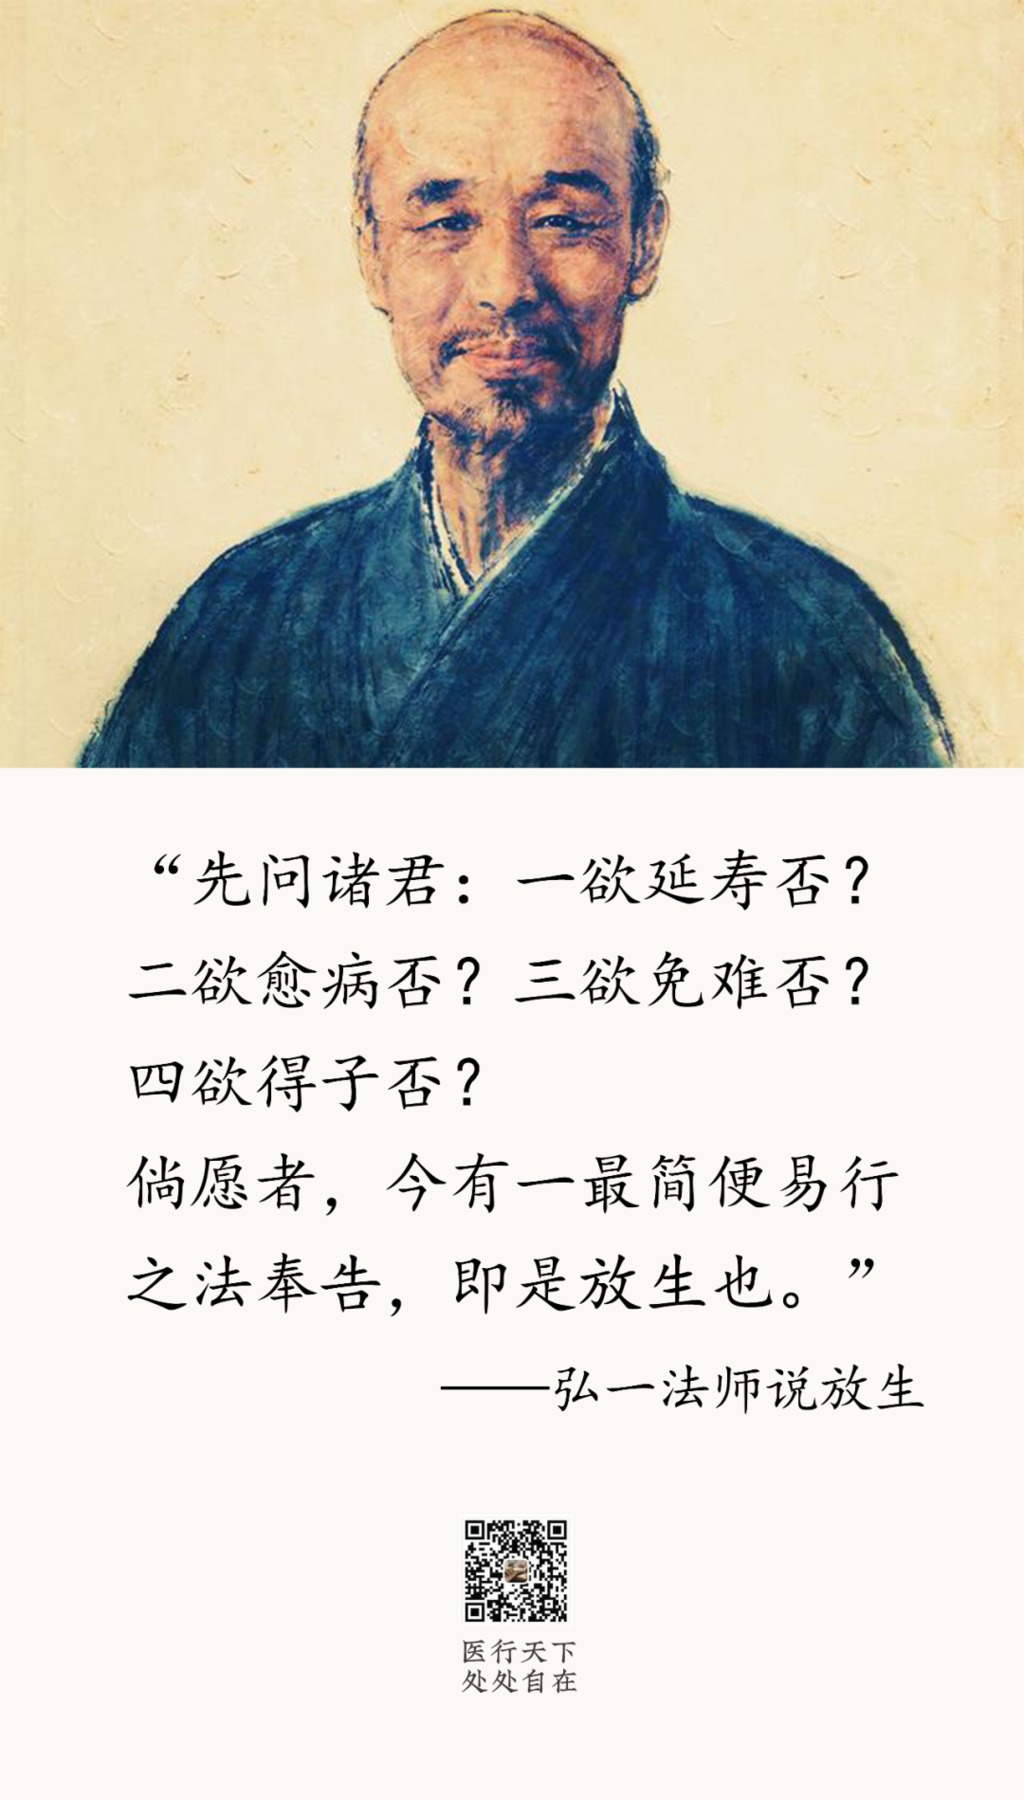 “先问诸君：一欲延寿否？
二欲愈病否？三欲免难否？
四欲得子否？
倘愿者，今有一最简便易行
之法奉告，即是放生也。”
——弘一法师说放生
医行天下
处处自在